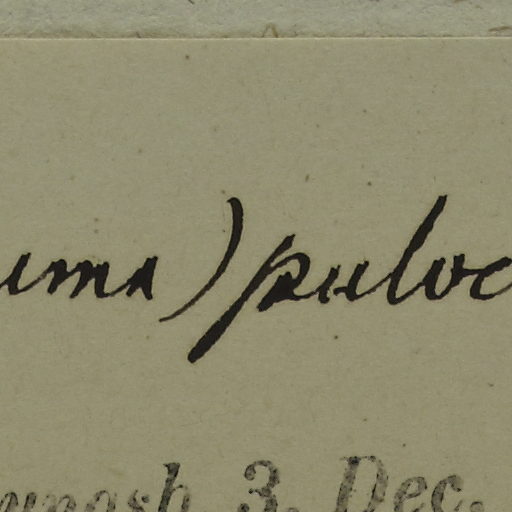 uma) pulve
nash 3. Dec.